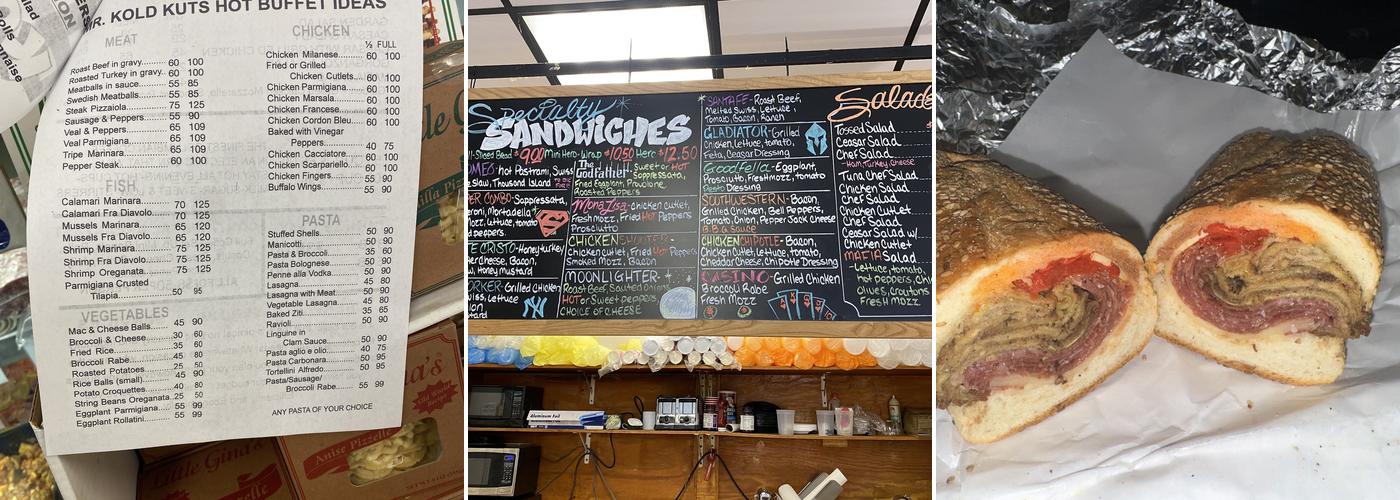 MR. KOLD KUTS HOT BUFFET IDEAS
MEAT
Roast Beef in gravy 60 100
Roasted Turkey in gravy 60 100
Meatballs in sauce 55 85
Swedish Meatballs 55 85
Steak Pizzaiola 75 125
Sausage & Peppers 55 90
Veal & Peppers 65 109
Veal Parmigiana 65 109
Tripe Marinara 65 109
Pepper Steak 60 100
FISH
Calamari Marinara 70 125
Calamari Fra Diavolo 70 125
Mussels Marinara 65 120
Mussels Fra Diavolo 65 120
Shrimp Marinara 75 125
Shrimp Fra Diavolo 75 125
Shrimp Oreganata 75 125
Parmigiana Crusted
Tilapia 50 95
VEGETABLES
Mac & Cheese Balls 45 90
Broccoli & Cheese 30 60
Fried Rice 35 60
Broccoli Rabe 45 80
Roasted Potatoes 25 50
Rice Balls (small) 45 90
Potato Croquettes 40 80
String Beans Oreganata 25 50
Eggplant Parmigiana 55 99
Eggplant Rollatini 55 99
CHICKEN
½ FULL
Chicken Milanese 60 100
Fried or Grilled
Chicken Cutlets 60 100
Chicken Parmigiana 60 100
Chicken Marsala 60 100
Chicken Francese 60 100
Chicken Cordon Bleu 60 100
Baked with Vinegar
Peppers 40 75
Chicken Cacciatore 60 100
Chicken Scarpariello 60 100
Chicken Fingers 55 90
Buffalo Wings 55 90
PASTA
Stuffed Shells 50 90
Manicotti 50 90
Pasta & Broccoli 35 60
Pasta Bolognese 50 90
Penne alla Vodka 50 90
Lasagna 45 80
Lasagna with Meat 50 90
Vegetable Lasagna 45 80
Baked Ziti 35 65
Ravioli 50 90
Linguine in
Clam Sauce 50 90
Pasta aglio e olio 40 75
Pasta Carbonara 50 90
Tortellini Alfredo 50 95
Pasta/Sausage/
Broccoli Rabe 55 99
ANY PASTA OF YOUR CHOICE
Little Gina's
Anise Pizzelle
Specialty
SANDWICHES
Sliced Bread $9.00 Mini Hero-Wrap $10.50 Hero $12.50
hot Pastrami, Swiss
Slaw, Thousand Island
COMBO-Soppressata,
Mortadella
Mozz, Lettuce, tomato
CRISTO-Honey turkey
Cheese, Bacon
Honey mustard
Grilled Chicken
Swiss, Lettuce
NY
The Godfather- Sweet or HOT
Soppressata,
Fried Eggplant, Provolone
Roasted Peppers
Mona Lisa-chicken cutlet,
Fresh mozz, Fried HOT Peppers
Prosciutto
CHICKENSHOOTER-
Chicken Cutlet, Fried HOT Peppers
Smoked Mozz, Bacon
MOONLIGHTER-
Roast Beef, Sauteed Onions
HOT or Sweet peppers
CHOICE OF CHEESE
SANTA FE-Roast Beef,
Melted Swiss, Lettuce,
Tomato, Bacon, Ranch
GLADIATOR-Grilled
Chicken, Lettuce, tomato,
Feta, Ceasar Dressing
Goodfella-Eggplant,
Prosciutto, Freshmozz, tomato
Pesto Dressing
SOUTHWESTERN-Bacon,
Grilled Chicken, Bell Peppers,
Tomato, Onion, Pepper Jack Cheese
B.B.Q Sauce
CHICKEN CHIPOTLE-Bacon,
Chicken Cutlet, Lettuce, tomato,
Cheddar Cheese, Chipotle Dressing
CASINO-Grilled Chicken
Broccoli Rabe
Fresh Mozz
Salads
Tossed Salad
Ceasar Salad
Chef Salad
-Ham, Turkey, Cheese
Tuna Chef Salad
Chicken Salad
Chef Salad
Chicken Cutlet
Chef Salad
Ceasar Salad w/
Chicken Cutlet
MAFIA Salad
-Lettuce, tomato,
hot peppers,
olives, croutons
Fresh Mozz
Aluminum Foil